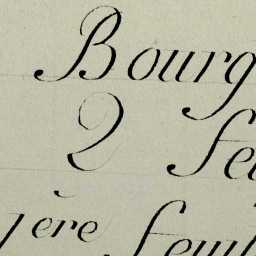 Bourg
2 fe
1ère feuil